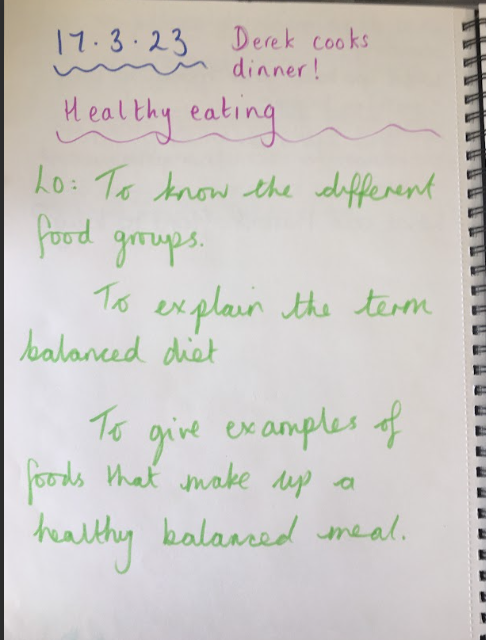 17.3.23 Derek cooks
dinner!
Healthy eating
LO: To know the different
food groups.
To explain the term
balanced diet
To give examples of
foods that make up a
healthy balanced meal.